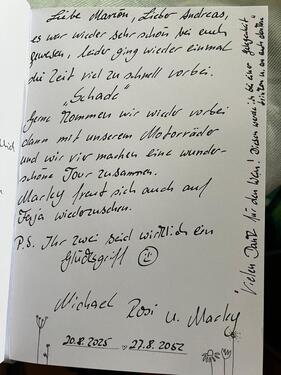 Liebe Marion, Lieber Andreas,
es war wieder sehr schön bei euch
gewesen, leider ging wieder einmal
die Zeit viel zu schnell vorbei.
„Schade“
Gerne kommen wir wieder vorbei
dann mit unserem Motorräder
und wir vier machen eine wunder-
schöne Tour zusammen.
Marley freut sich auch auf
Fenja wiederzusehen.
P.S. Ihr zwei seid wirklich ein
Glücksgriff ☺
Michael Rosi u. Marley
20.8.2025 - 27.8.2052
Vielen Dank für den Wein! Diesen werde ich bei einer Gelegenheit
trinken u. an euch denken"